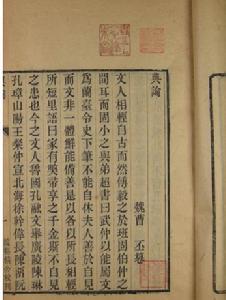 典論
魏曹 丕撰
文人相輕自古而然傅毅之於班固伯仲之
間耳而固小之與弟超書曰武仲以能屬文
為蘭臺令史下筆不能自休夫人善於自見
而文非一體鮮能備善是以各以所長相輕
所短里語曰家有帚享之千金斯不自見
之患也今之文人魯國孔融文舉廣陵陳琳
孔璋山陽王粲仲宣北海徐幹偉長陳留阮